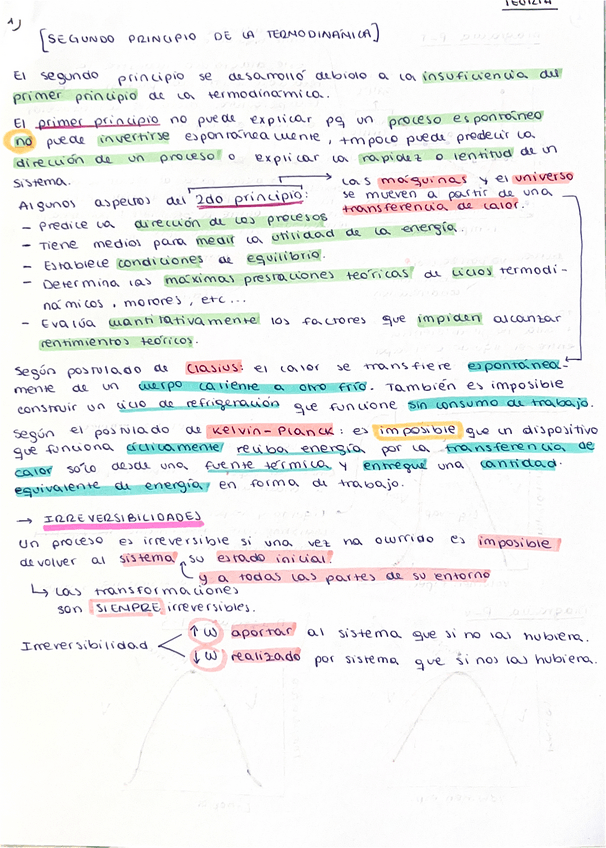 TEORÍA
1)
[SEGUNDO PRINCIPIO DE LA TERMODINÁMICA]
El segundo principio se desarrolló debido a la insuficiencia del
primer principio de la termodinámica.
El primer principio no puede explicar pq un proceso espontáneo
no puede invertirse espontáneamente, tmpoco puede predecir la
dirección de un proceso o explicar la rapidez o lentitud de un
sistema.
Las máquinas y el universo
se mueven a partir de una
transferencia de calor.
Algunos aspectos del 2do principio:
- Predice la dirección de los procesos
- Tiene medios para medir la utilidad de la energía.
- Establece condiciones de equilibrio.
- Determina las máximas prestaciones teóricas de ciclos termodi-
námicos, motores, etc...
- Evalúa cuantitativamente los factores que impiden alcanzar
rentimientos teóricos.
Según postulado de Clasius: el calor se transfiere espontánea-
mente de un cuerpo caliente a otro frío. También es imposible
construir un ciclo de refrigeración que funcione sin consumo de trabajo.
Según el postulado de Kelvin-Planck: es imposible que un dispositivo
que funciona cíclicamente reciba energía por la transferencia de
calor solo desde una fuente térmica y entregue una cantidad
equivalente de energía en forma de trabajo.
→ IRREVERSIBILIDADES
Un proceso es irreversible si una vez ha ocurrido es imposible
devolver al sistema su estado inicial.
y a todas las partes de su entorno
↳ Las transformaciones
son SIEMPRE irreversibles.
Irreversibilidad < ↑ W aportar al sistema que si no las hubiera.
↓ W realizado por sistema que si nos las hubiera.